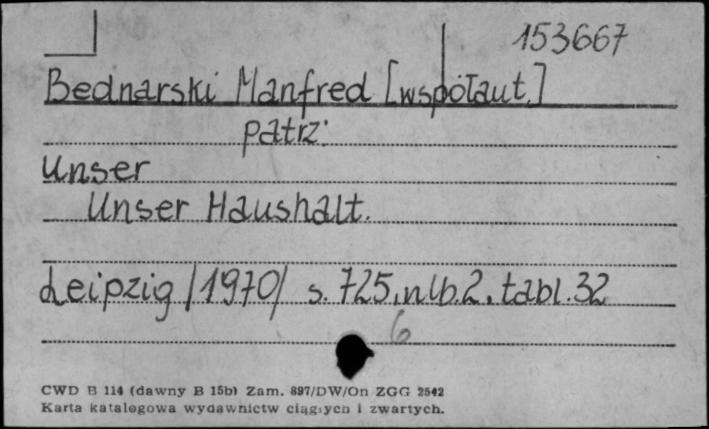 153667
Bednarski Manfred [współaut.]
patrz:
Unser
Unser Haushalt.
Leipzig /1970/ s. 725, nlb. 2, tabl. 32
6
CWD B 114 (dawny B 15b) Zam. 897/DW/On ZGG 2542
Karta katalogowa wydawnictw ciągłych i zwartych.